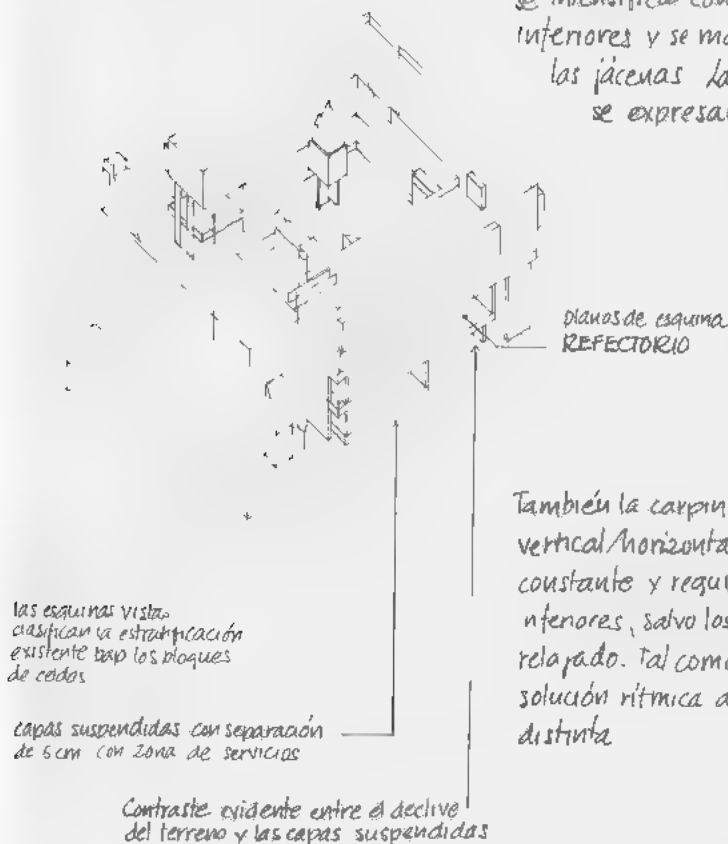 inferiores y se
las jácenas
se expresa
planos de esquina
REFECTORIO
También la
vertical/horizontal
constante y
salvo los
Tal como
solución rítmica
distinta
las esquinas vistas
clasifican la estratificación
existente bajo los bloques
de celdas
capas suspendidas con separación
de 5cm con zona de servicios
Contraste evidente entre el declive
del terreno y las capas suspendidas